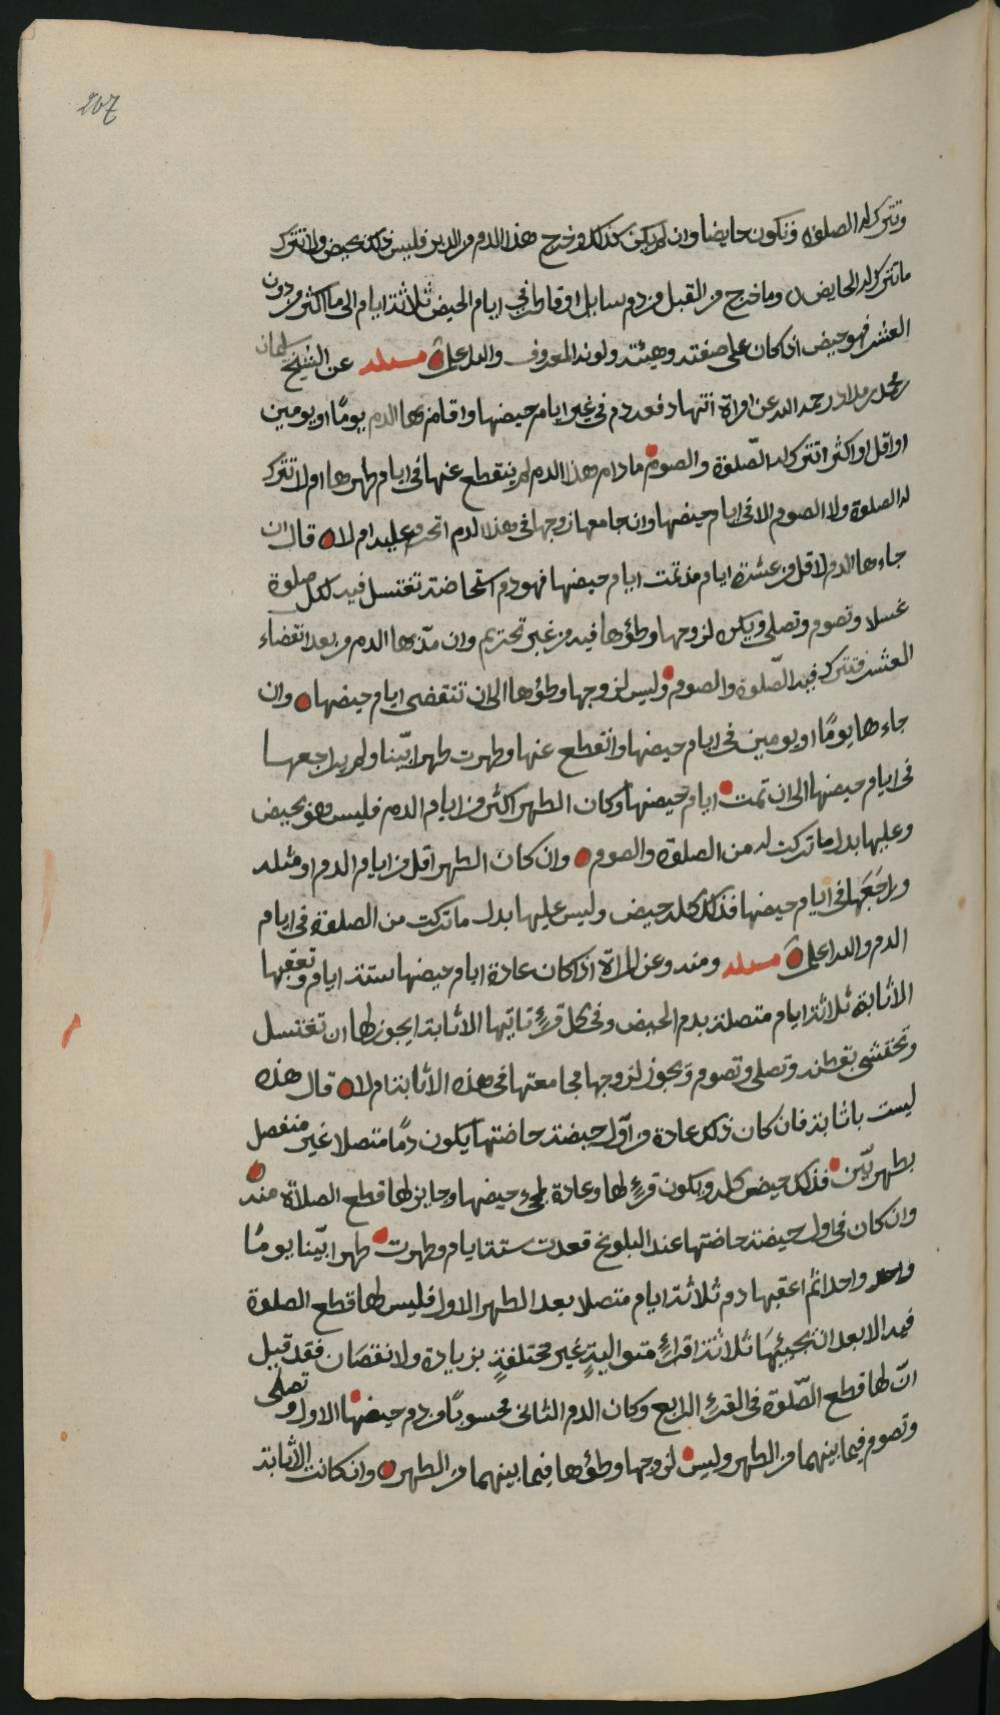 207
وتترك له الصلوة وتكون حايضا وان لم يكن كذلك وخرج هذا الدم من الدبر فليس ذلك بحيض ولا تترك
ما تترك له الحايض وما خرج من القبل من دم سايل او قاطر في ايام الحيض ثلاثة ايام الى ما اكثر من دون
العشر فهو حيض اذا كان على صفته وهيئته ولونه المعروف والله اعلم مسئله عن الشيخ سليمان
بن محمد بن مداد رحمه الله عن امراة اتتها دفعة دم في غير ايام حيضها واقام بها الدم يومًا او يومين
او اقل او اكثر اتترك له الصّلوة والصوم ما دام هذا الدم لم ينقطع عنها في ايام طهرها ام لا تترك
له الصلوة ولا الصوم الا في ايام حيضها وان جامعها زوجها في هذا الدم اتحرم عليه ام لا قال ان
جاءها الدم لاقل من عشرة ايام مذ تمت ايام حيضها فهو دم استحاضة تغتسل فيه لكل صلوة
غسلا وتصوم وتصلى ويكره لزوجها وطؤها فيه من غير تحريم وان مدّ بها الدم من بعد انقضاء
العشر فتترك فيه الصّلوة والصوم وليس لزوجها وطؤها الى ان تنقضى ايام حيضها وان
جاءها يومًا او يومين في ايام حيضها وانقطع عنها وطهرت طهرا بيّنا ولم يراجعها
في ايام حيضها الى ان تمت ايام حيضها وكان الطهر اكثر من ايام الدم فليس هو بحيض
وعليها بدل ما تركت له من الصلوة والصوم وان كان الطهر اقل من ايام الدم او مثله
وراجَعَها في ايام حيضها فذلك كله حيض وليس عليها بدل ما تركت من الصلوة في ايام
الدم والله اعلم مسئله ومنه وعن المراة اذا كان عادة ايام حيضها ستة ايام وتعقبها
الاثابة ثلاثة ايام متصلة بدم الحيض وفي كل قرءٍ تاتيها الاثابة ايجوز لها ان تغتسل
وتحتشى بقطنة وتصلى وتصوم ويجوز لزوجها مجامعتها في هذه الاثابة ام لا قال هذه
ليست باثابة فان كان ذلك عادة من اوّل حيضة حاضتها يكون دمًا متصلا غير منفصل
بطهر بيّن فذلك حيض كله ويكون قرءٍ لها وعادة لمجىء حيضها وجايز لها قطع الصلاة منه
وان كان في اول حيضة حاضتها عند البلوغ قعدت ستة ايام وطهرت طهرا بيّنا يومًا
واحد واحدا ثم اعقبها دم ثلاثة ايام متصلا بعد الطهر الاول فليس لها قطع الصلوة
فيه الا بعد ان يجيئهَا ثلاثة اقراءٍ متواليةٍ غير مختلفةٍ بزيادة ولا نقصَان فقد قيل
انّ لها قطع الصّلوة في القرءِ الرابع وكان الدم الثانى محسوبًا من دم حيضها الاول وتصلى
وتصوم فيما بينهما من الطهر وليس لزوجها وطؤها فيما بينهما من الطهر وان كانت الاثابة